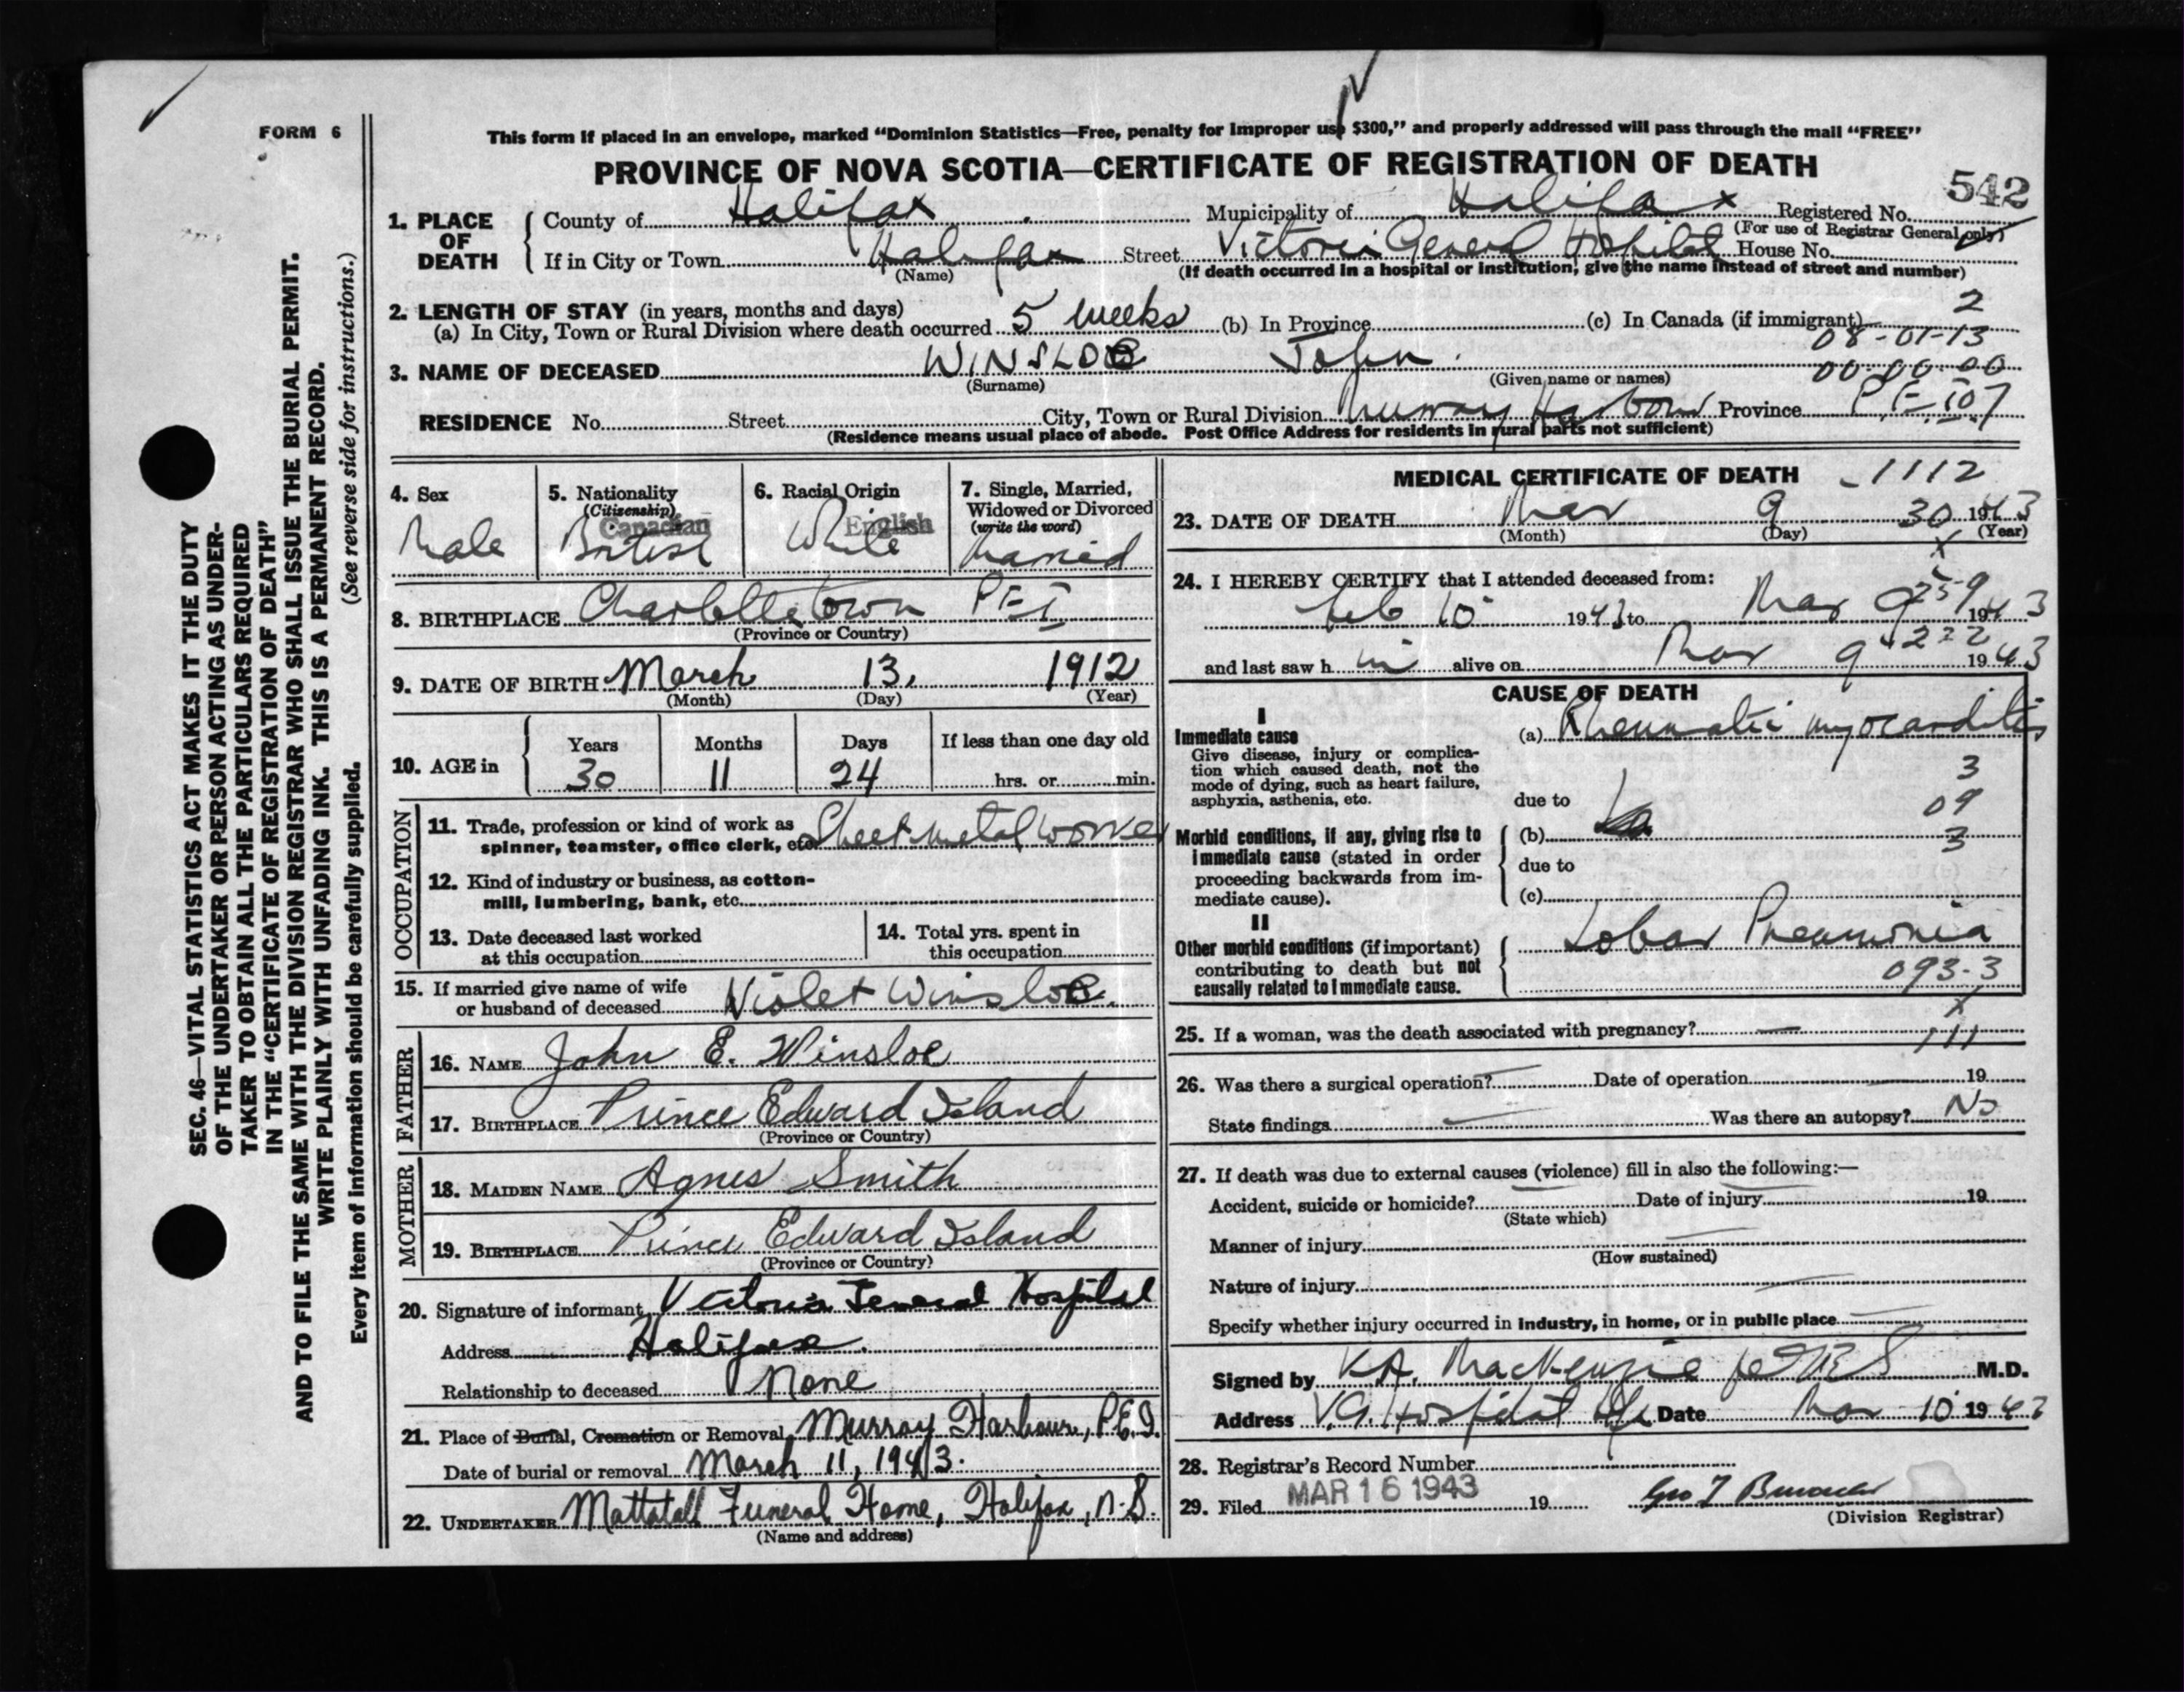 FORM 6
This form if placed in an envelope, marked “Dominion Statistics—Free, penalty for improper use $300,” and properly addressed will pass through the mail “FREE”
PROVINCE OF NOVA SCOTIA—CERTIFICATE OF REGISTRATION OF DEATH
542
1. PLACE OF DEATH { County of Halifax Municipality of Halifax Registered No.
(For use of Registrar General only)
If in City or Town Halifax Street Victoria General Hospital House No.
(Name) (If death occurred in a hospital or institution, give the name instead of street and number)
2. LENGTH OF STAY (in years, months and days)
(a) In City, Town or Rural Division where death occurred 5 weeks (b) In Province (c) In Canada (if immigrant) 2
08-01-13
3. NAME OF DECEASED WINSLOE John
(Surname) (Given name or names) 00-00-00
RESIDENCE No. Street City, Town or Rural Division Murray Harbour Province P.E.I. 07
(Residence means usual place of abode. Post Office Address for residents in rural parts not sufficient)
4. Sex
Male
5. Nationality
(Citizenship)
Canadian
British
6. Racial Origin
English
White
7. Single, Married,
Widowed or Divorced
(write the word)
Married
8. BIRTHPLACE Charlottetown PEI
(Province or Country)
9. DATE OF BIRTH March 13, 1912
(Month) (Day) (Year)
10. AGE in { Years Months Days If less than one day old
30 11 24 hrs. or min.
OCCUPATION
11. Trade, profession or kind of work as
spinner, teamster, office clerk, etc. Sheet metal worker
12. Kind of industry or business, as cotton-
mill, lumbering, bank, etc.
13. Date deceased last worked
at this occupation
14. Total yrs. spent in
this occupation
15. If married give name of wife
or husband of deceased Violet Winsloe.
FATHER
16. NAME John E. Winsloe
17. BIRTHPLACE Prince Edward Island
(Province or Country)
MOTHER
18. MAIDEN NAME Agnes Smith
19. BIRTHPLACE Prince Edward Island
(Province or Country)
20. Signature of informant Victoria General Hospital
Address Halifax.
Relationship to deceased None
21. Place of Burial, Cremation or Removal Murray Harbour, P.E.I.
Date of burial or removal March 11, 1943.
22. UNDERTAKER Mattatall Funeral Home, Halifax, N.S.
(Name and address)
MEDICAL CERTIFICATE OF DEATH -1112
23. DATE OF DEATH Mar 9 30 1943
(Month) (Day) (Year)
24. I HEREBY CERTIFY that I attended deceased from:
Feb 10 1943 to Mar 9 1943
259
222
and last saw h im alive on Mar 9 1943
CAUSE OF DEATH
I
Immediate cause (a) Rheumatic myocarditis
Give disease, injury or complica-
tion which caused death, not the
mode of dying, such as heart failure,
asphyxia, asthenia, etc. due to
3
09
3
Morbid conditions, if any, giving rise to (b)
immediate cause (stated in order
proceeding backwards from im-
mediate cause). due to
(c)
II
Other morbid conditions (if important)
contributing to death but not
causally related to immediate cause.
Lobar Pneumonia
093-3
25. If a woman, was the death associated with pregnancy? —
111
26. Was there a surgical operation? Date of operation 19
State findings Was there an autopsy? No
27. If death was due to external causes (violence) fill in also the following:—
Accident, suicide or homicide? Date of injury 19
(State which)
Manner of injury
(How sustained)
Nature of injury
Specify whether injury occurred in industry, in home, or in public place
Signed by K.A. MacKenzie M.D.
Address V.G. Hospital Hfx Date Mar 10 1943
28. Registrar's Record Number
29. Filed MAR 16 1943 19
(Division Registrar)
SEC. 46—VITAL STATISTICS ACT MAKES IT THE DUTY
OF THE UNDERTAKER OR PERSON ACTING AS UNDER-
TAKER TO OBTAIN ALL THE PARTICULARS REQUIRED
IN THE “CERTIFICATE OF REGISTRATION OF DEATH”
AND TO FILE THE SAME WITH THE DIVISION REGISTRAR WHO SHALL ISSUE THE BURIAL PERMIT.
WRITE PLAINLY WITH UNFADING INK. THIS IS A PERMANENT RECORD.
Every item of information should be carefully supplied. (See reverse side for instructions.)